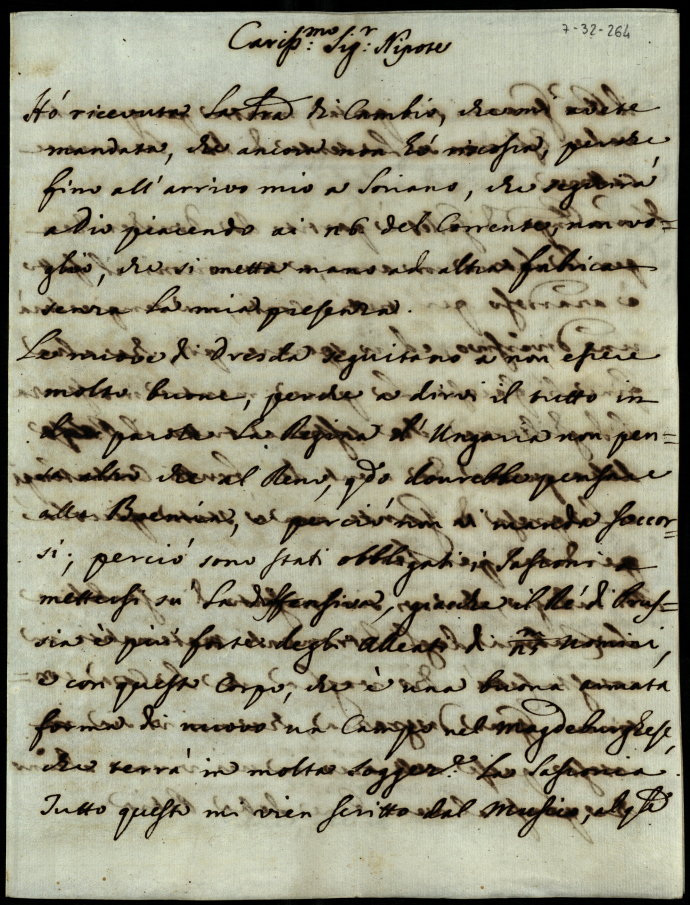 7-32-264
Cariss.mo Sig.r Nipote
Hó ricevuta la Lra di Cambio, che mi avete
mandata, che ancora non hó riscossa, perche
fino all'arrivo mio a Soriano, che seguirá
a Dio piacendo ai 16 del Corrente, non vo=
glio, che si metta mano ad altra fabrica
senza la mia presenza.
Le nuove di Dresda seguitano a non essere
molto buone, perche a dirvi il tutto in
parola la Regina d'Ungaria non pen=
che al Reno, qdo dovrebbe pensare
alla Boemia, e perció non vi manda soccor=
si; perció sono stati obbligati i Sassoni a
mettersi sú la diffensiva, giache il Ré di Prus=
sia é piú forte degli Alleati di nomini,
e con questo Corpo, che é una buona armata
forma di nuovo un Campo nel Magdeburghese,
che terrá in molta sogger.e la Sassonia.
Tutto questo mi vien scritto dal